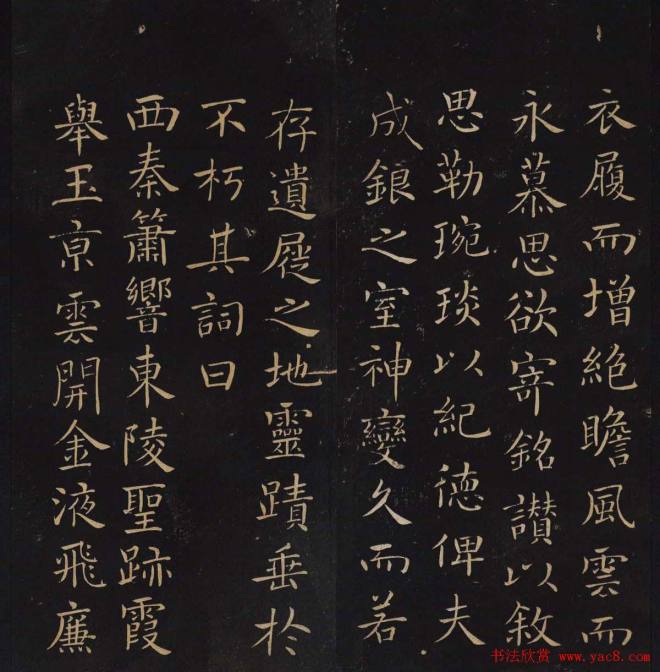 衣履而增絶瞻風雲而
永慕思欲寄銘讃以敘
思勒琬琰以紀德俾夫
成銀之室神變久而若
存遺屐之地靈蹟垂於
不朽其詞曰
西秦簫響東陵聖跡霞
舉玉京雲開金液飛廉
书法欣赏 www.yac8.com